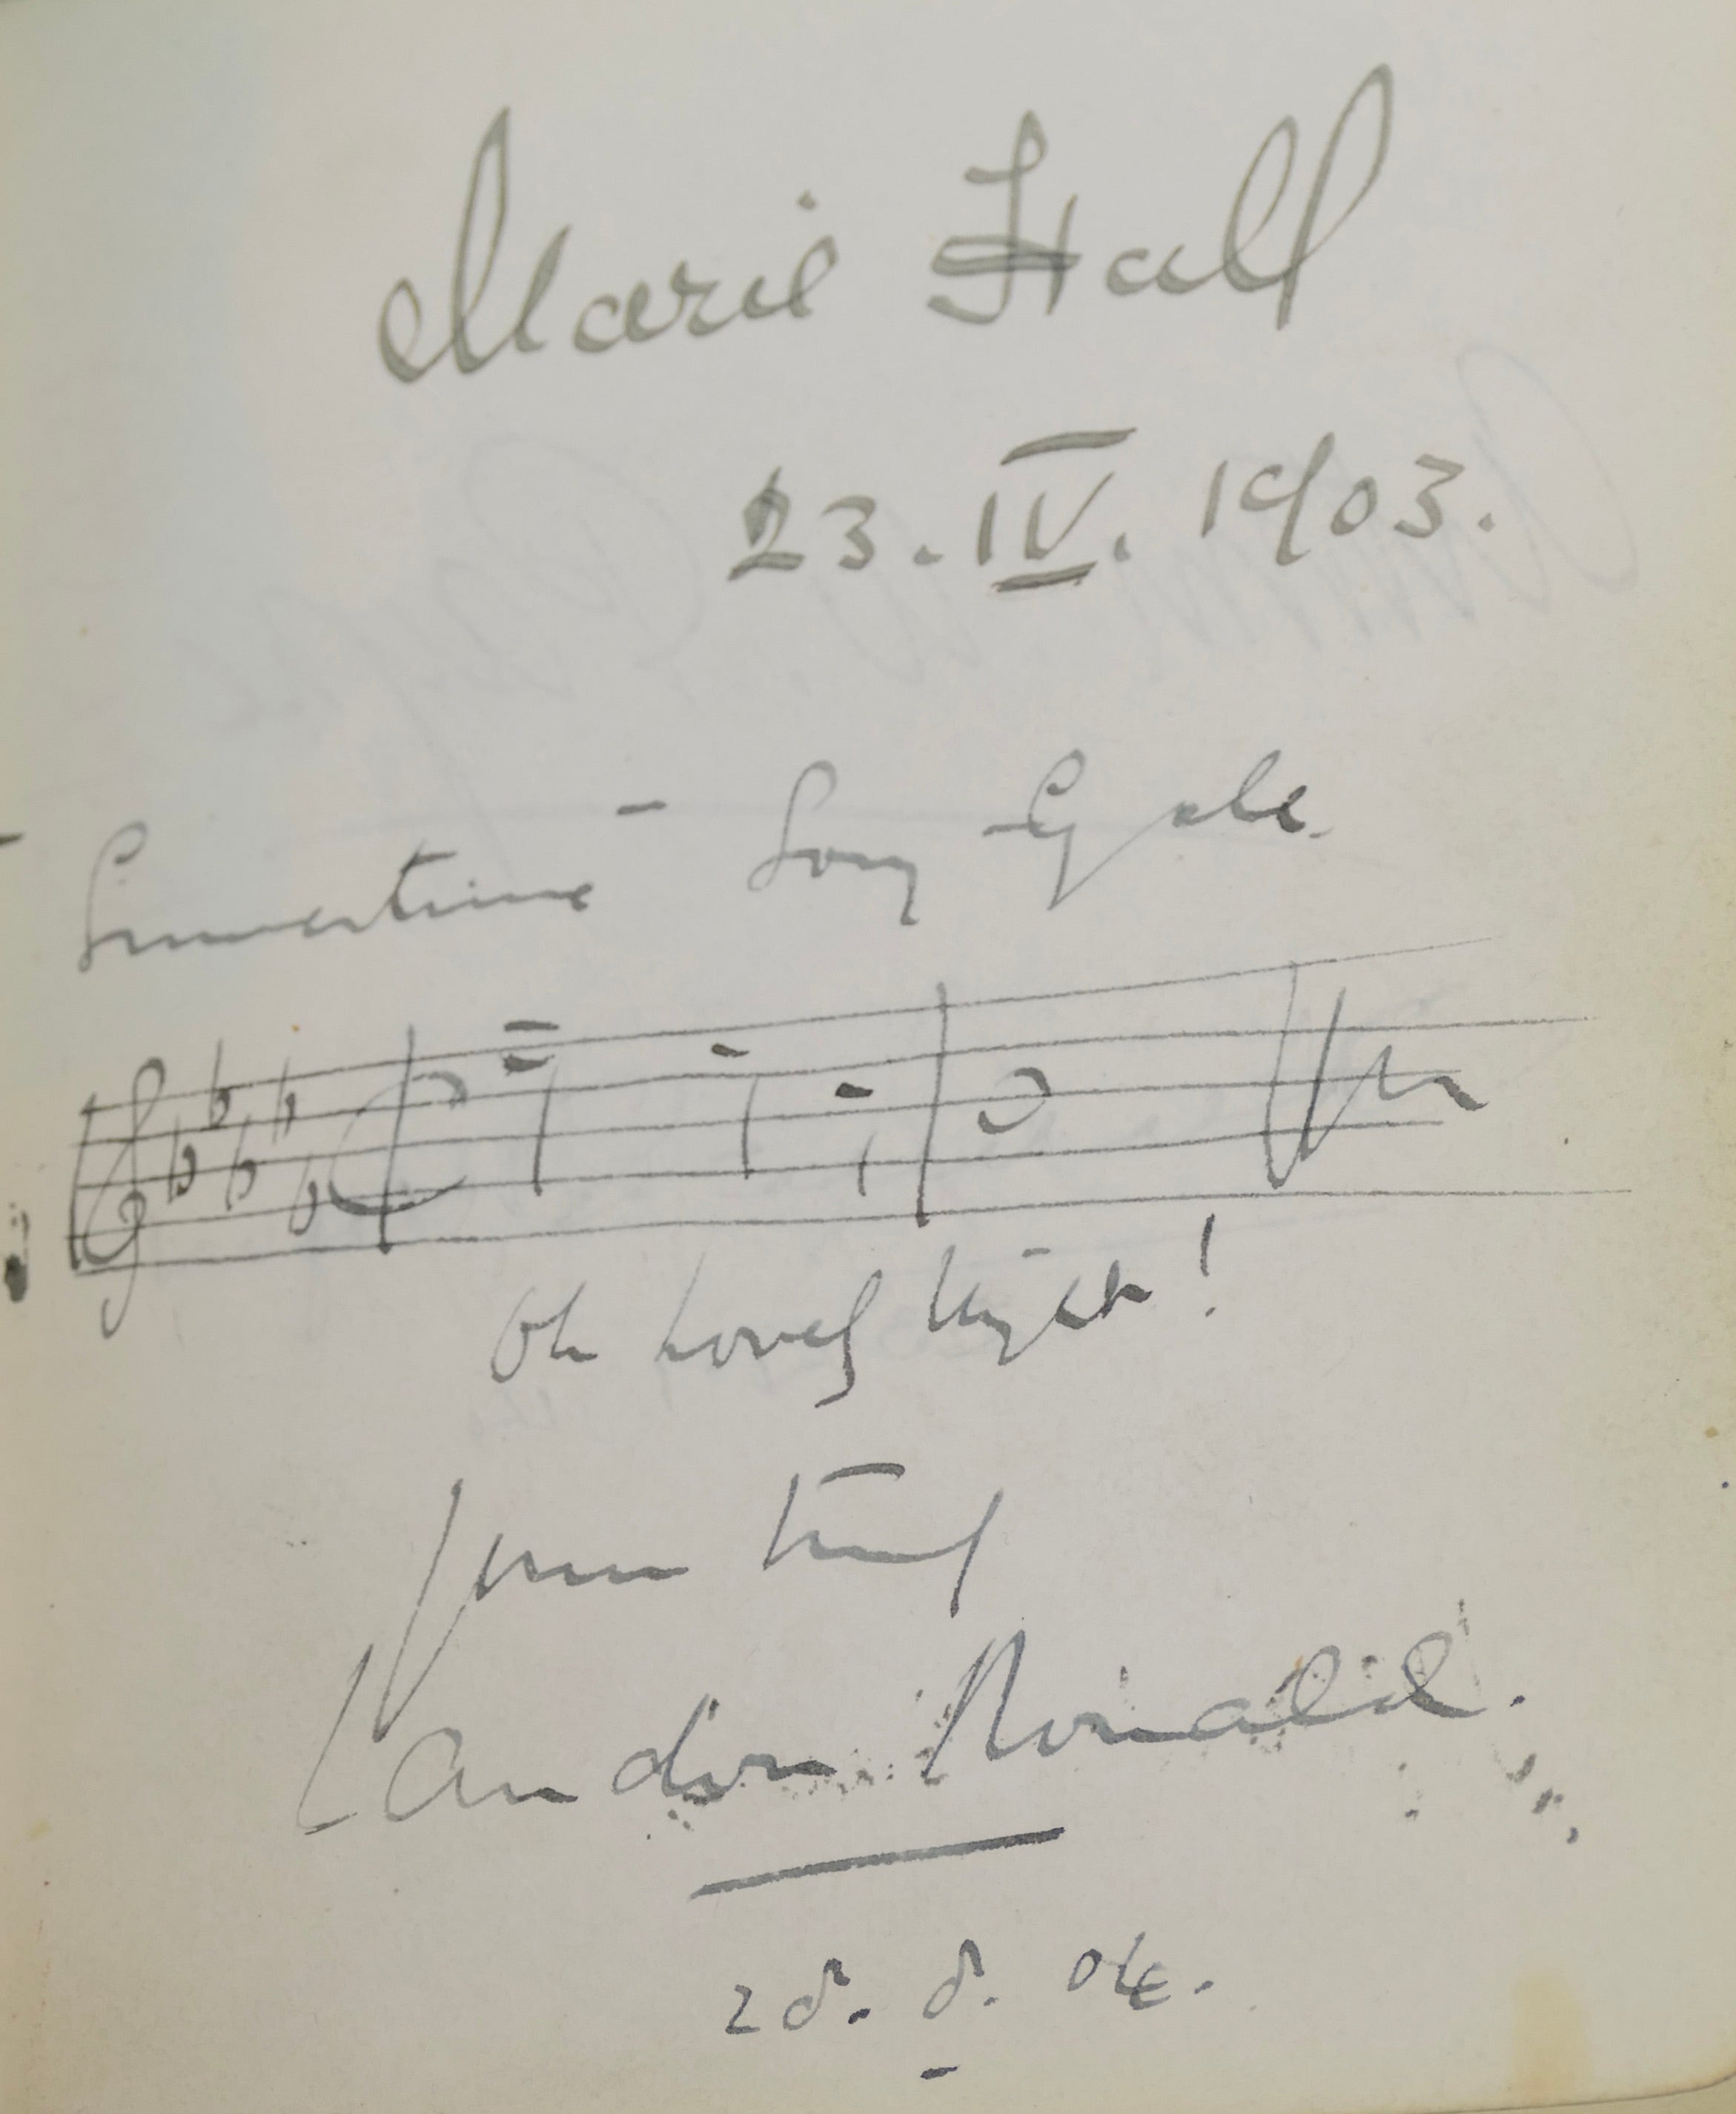 Marie Hall
23. IV. 1903.
Summertime - Song Cycle.
Oh Lovely Night!
Yours truly
Landon Ronald.
28. 8. 04.